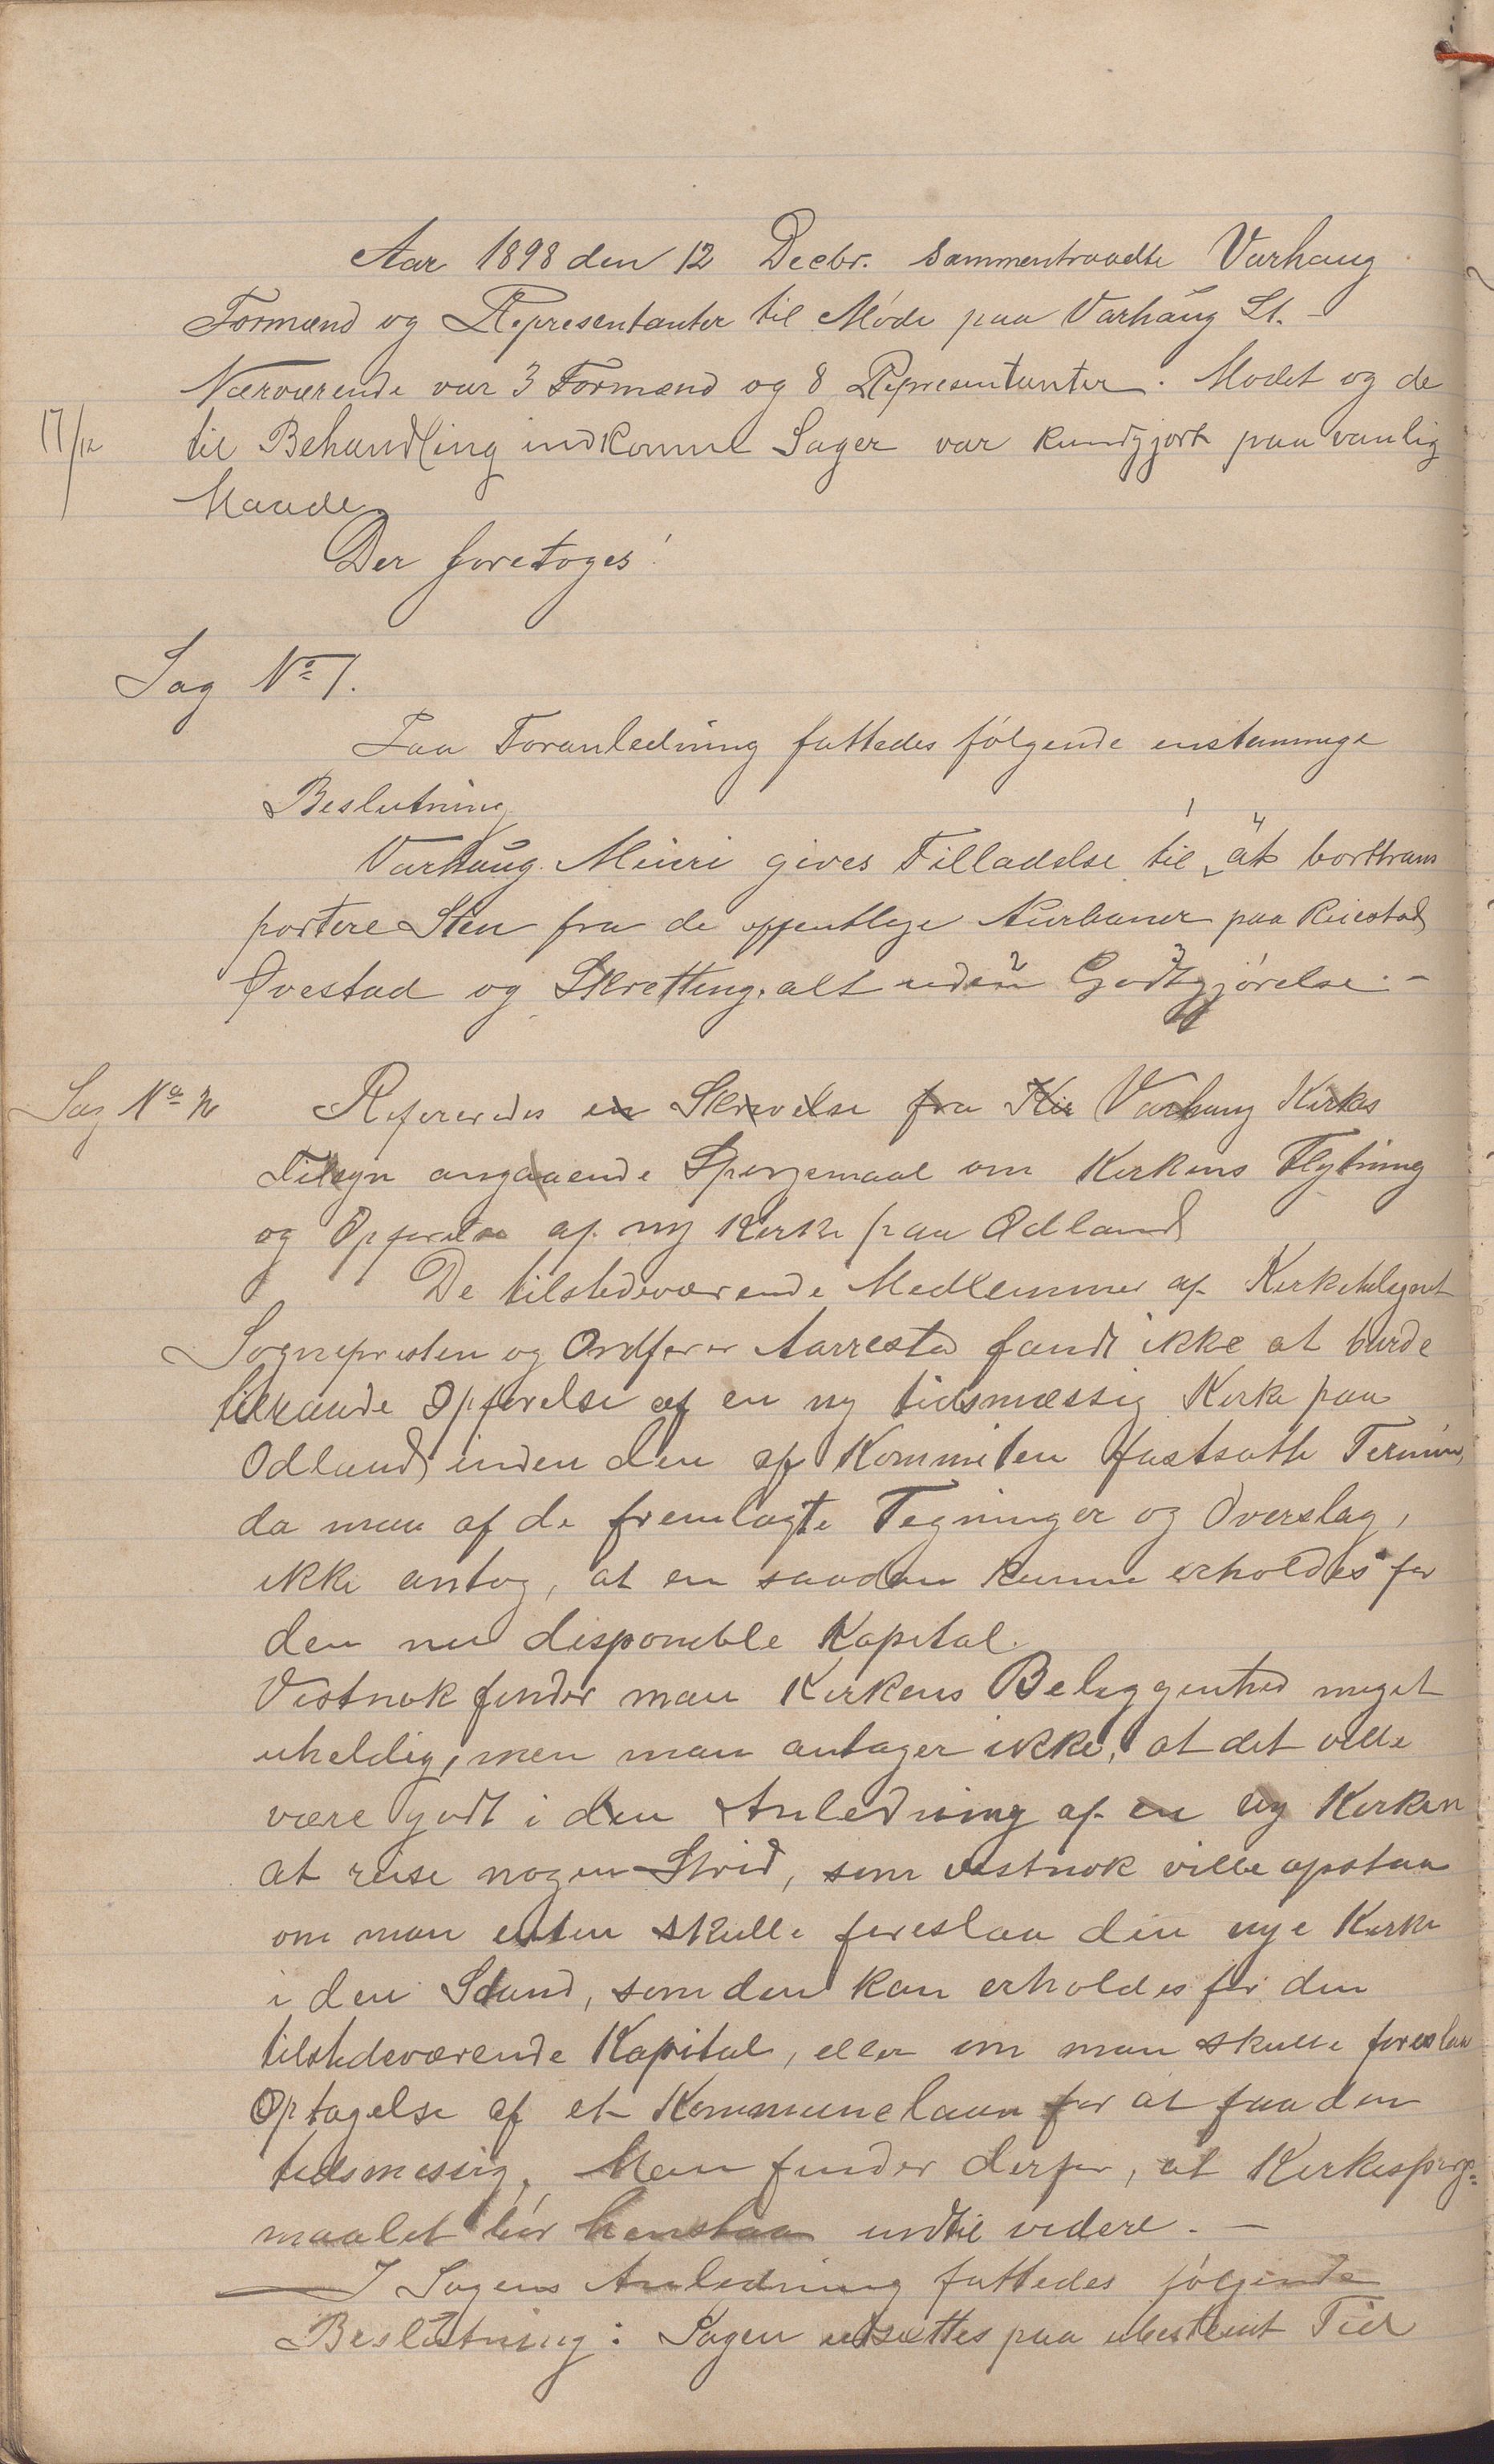 Aar 1898 den 12 Decbr. sammentraadte Varhaug
Formænd og Representanter til Møde paa Varhaug St. -
Nærværende var 3 Formænd og 8 Representanter. Mødet og de
17/12 til Behandling indkomne Sager var kundgjort paa vanlig
Maade.
Der foretoges!
Sag No 1.
Paa Foranledning fattedes følgende enstemmige
Beslutning
1 4
Varhaug Mieri gives Tilladelse til at borttrans
portere Sten fra de offentlige Aurbaner paa Riestad
Øvestad og Skretting, alt uden Godtgjørelse. -
2 3
Sag No 2 Refereredes en Skrivelse fra Kir Varhaug Kirkes
Tilsyn angaaende Spørgsmaal om Kirkens Flytning
og Opførelse af ny Kirke paa Odland
De tilstedeværende Medlemmer af Kirketilsynet
Sognepresten og Ordfører Aarrestad fandt ikke at burde
tilraade Opførelse af en ny tidsmæssig Kirke paa
Odland inden den af Kommiten fastsatte Termin,
da man af de fremlagte Tegninger og Overslag,
ikke antog, at en saadan kunne erholdes for
den nu disponible Kapital.
Vistnok finder man Kirkens Beliggenhed meget
uheldig, men man antager ikke, at det ville
være godt i den Anledning af en ny Kirken
at reise nogen Strid, som vistnok ville opstaa
om man enten skulle foreslaa den nye Kirke
i den Stand, som den kan erholdes for den
tilstedeværende Kapital, eller om man skulle foreslaa
Optagelse af et Kommunelaan for at faa den
tidsmessig. Man finder derfor, at Kirkespørgs=
maalet bør henstaa indtil videre. -
I Sagens Anledning fattedes følgende
Beslutning: Sagen udsættes paa ubestemt Tid